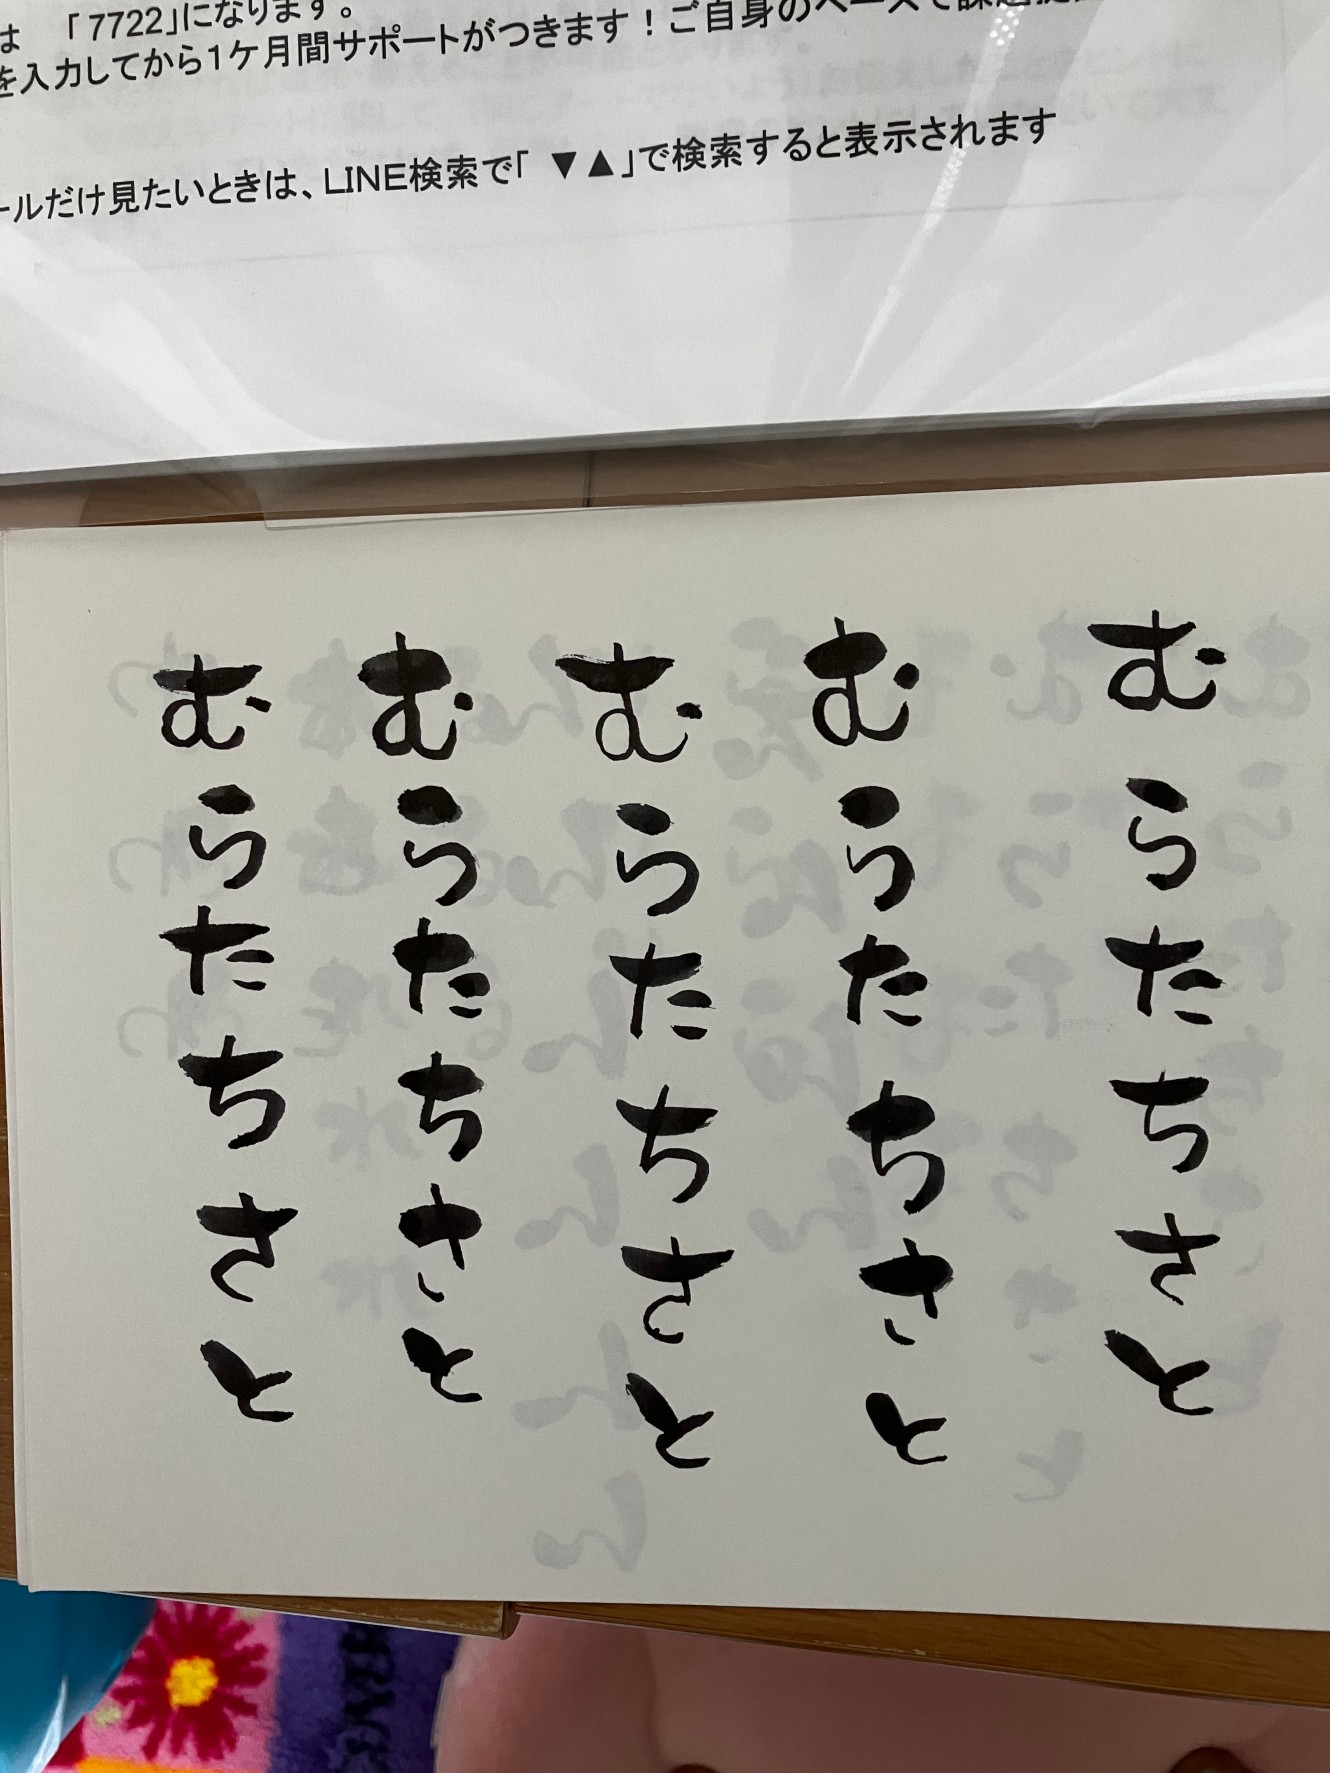 は 「7722」になります。
を入力してから1ケ月間サポートがつきます！ご自身のペースで
ールだけ見たいときは、LINE検索で「 ▼▲」で検索すると表示されます
むらたちさと
むらたちさと
むらたちさと
むらたちさと
むらたちさと